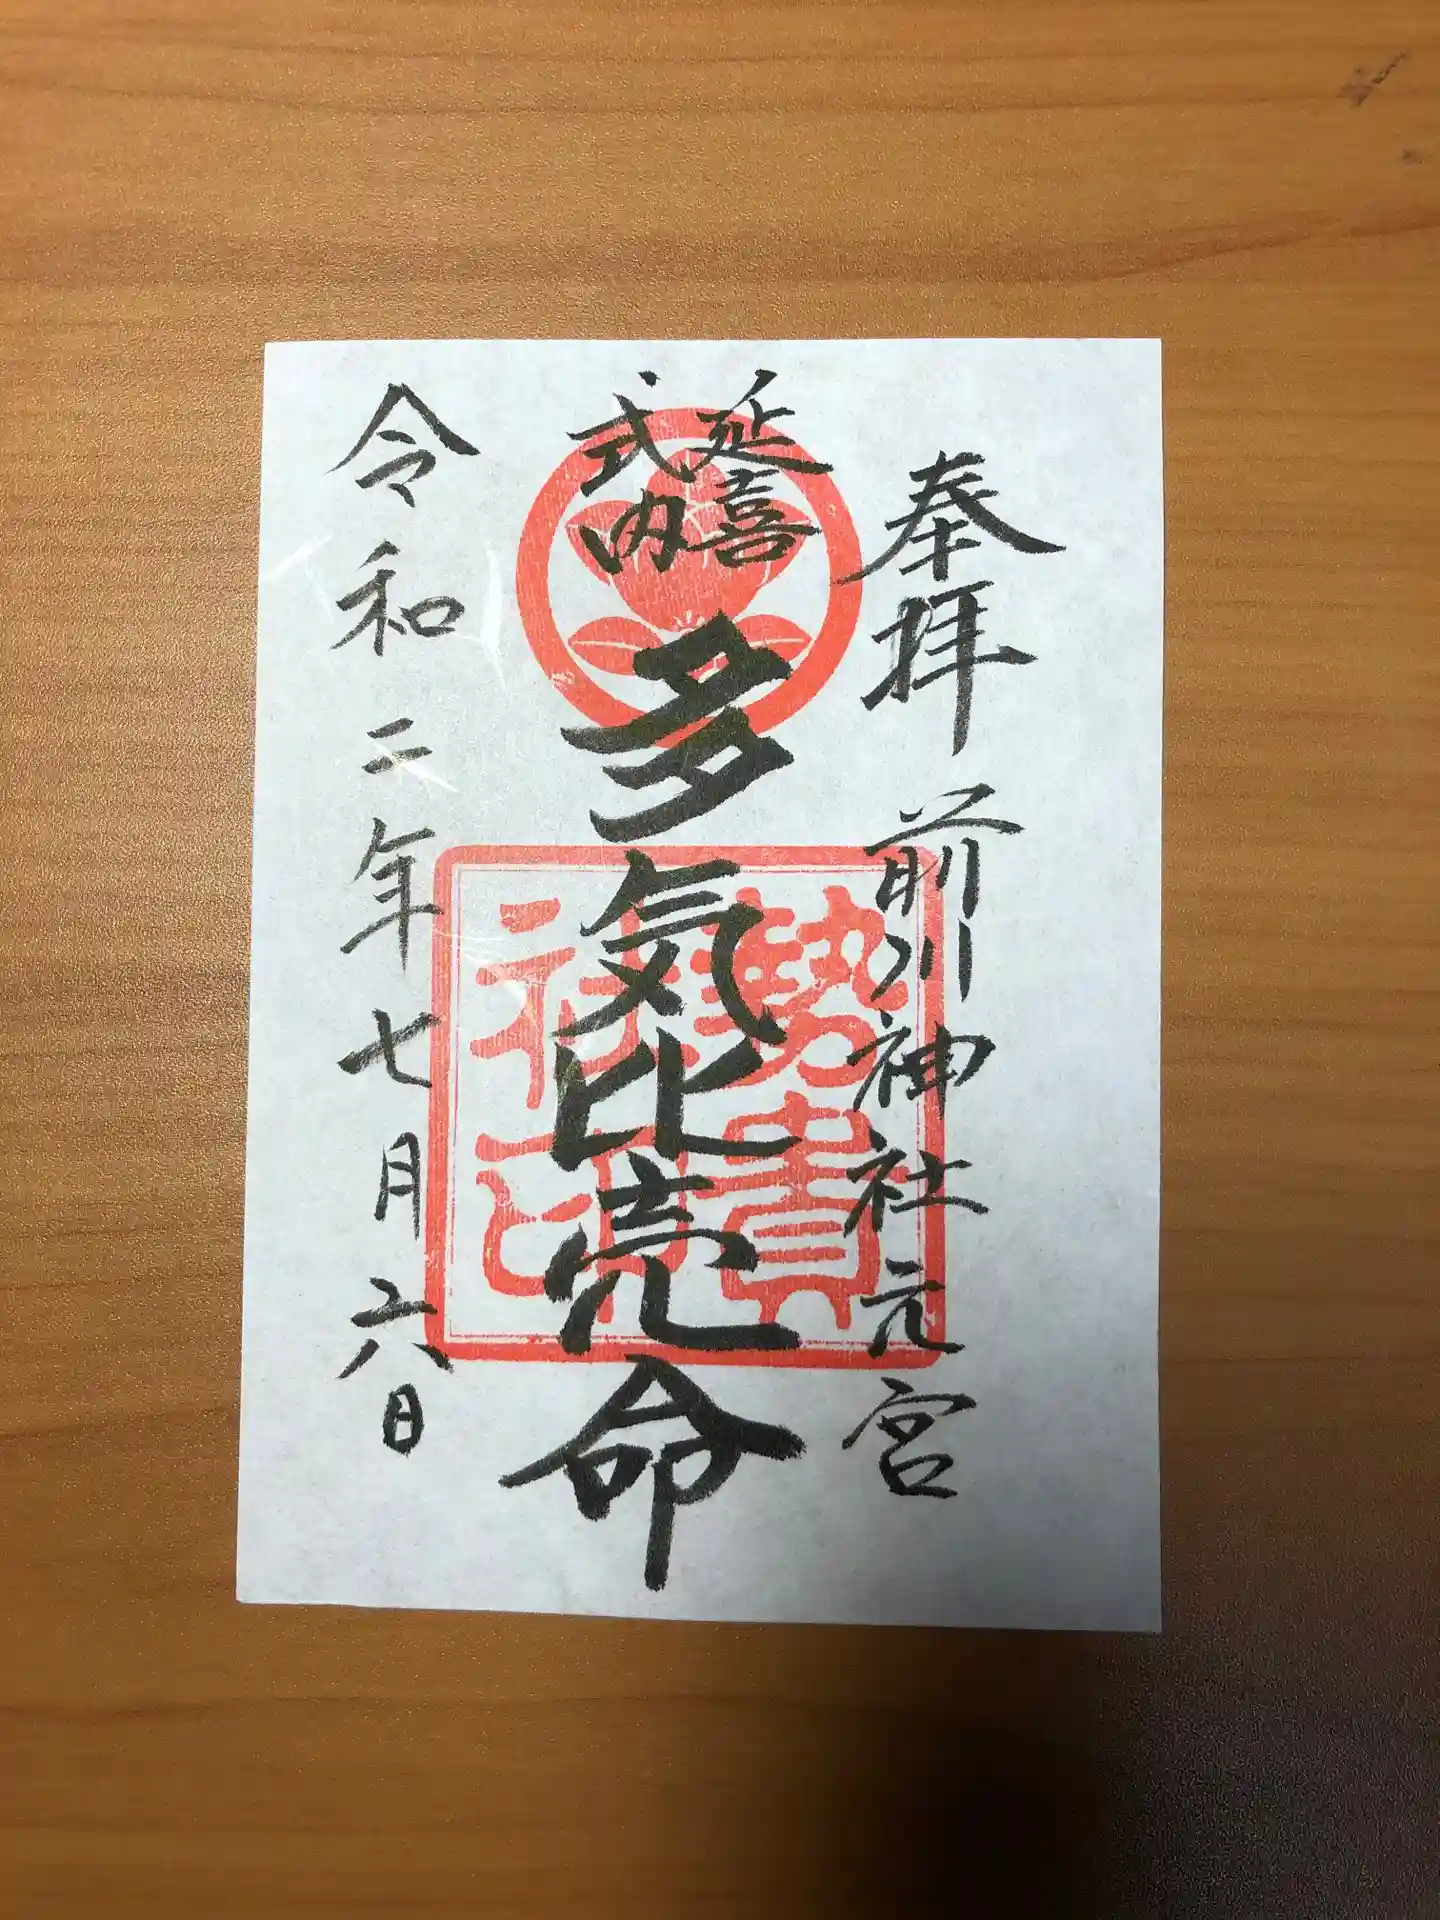 奉拝 前川神社元宮
延喜
式内
多気比売命
令和二年七月六日